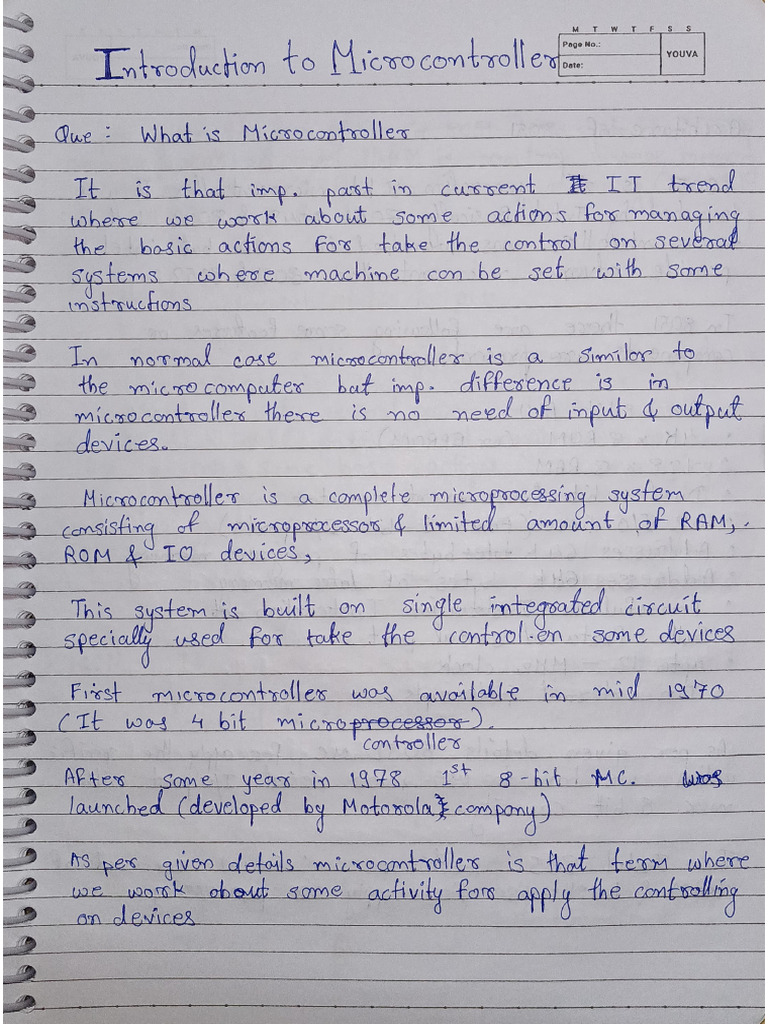 M T W T F S S
Page No.:
Date:
YOUVA
Introduction to Microcontroller
Que : What is Microcontroller
It is that imp. part in current IT trend
where we work about some actions for managing
the basic actions for take the control on several
systems where machine can be set with some
instructions
In normal case microcontroller is a similar to
the microcomputer but imp. difference is in
microcontroller there is no need of input & output
devices.
Microcontroller is a complete microprocessing system
consisting of microprocessor & limited amount of RAM,
ROM & IO devices,
This system is built on single integrated circuit
specially used for take the control on some devices
First microcontroller was available in mid 1970
(It was 4 bit microprocessor).
controller
After some year in 1978 1st 8-bit MC. was
launched (developed by Motorola company)
As per given details microcontroller is that term where
we work about some activity for apply the controlling
on devices